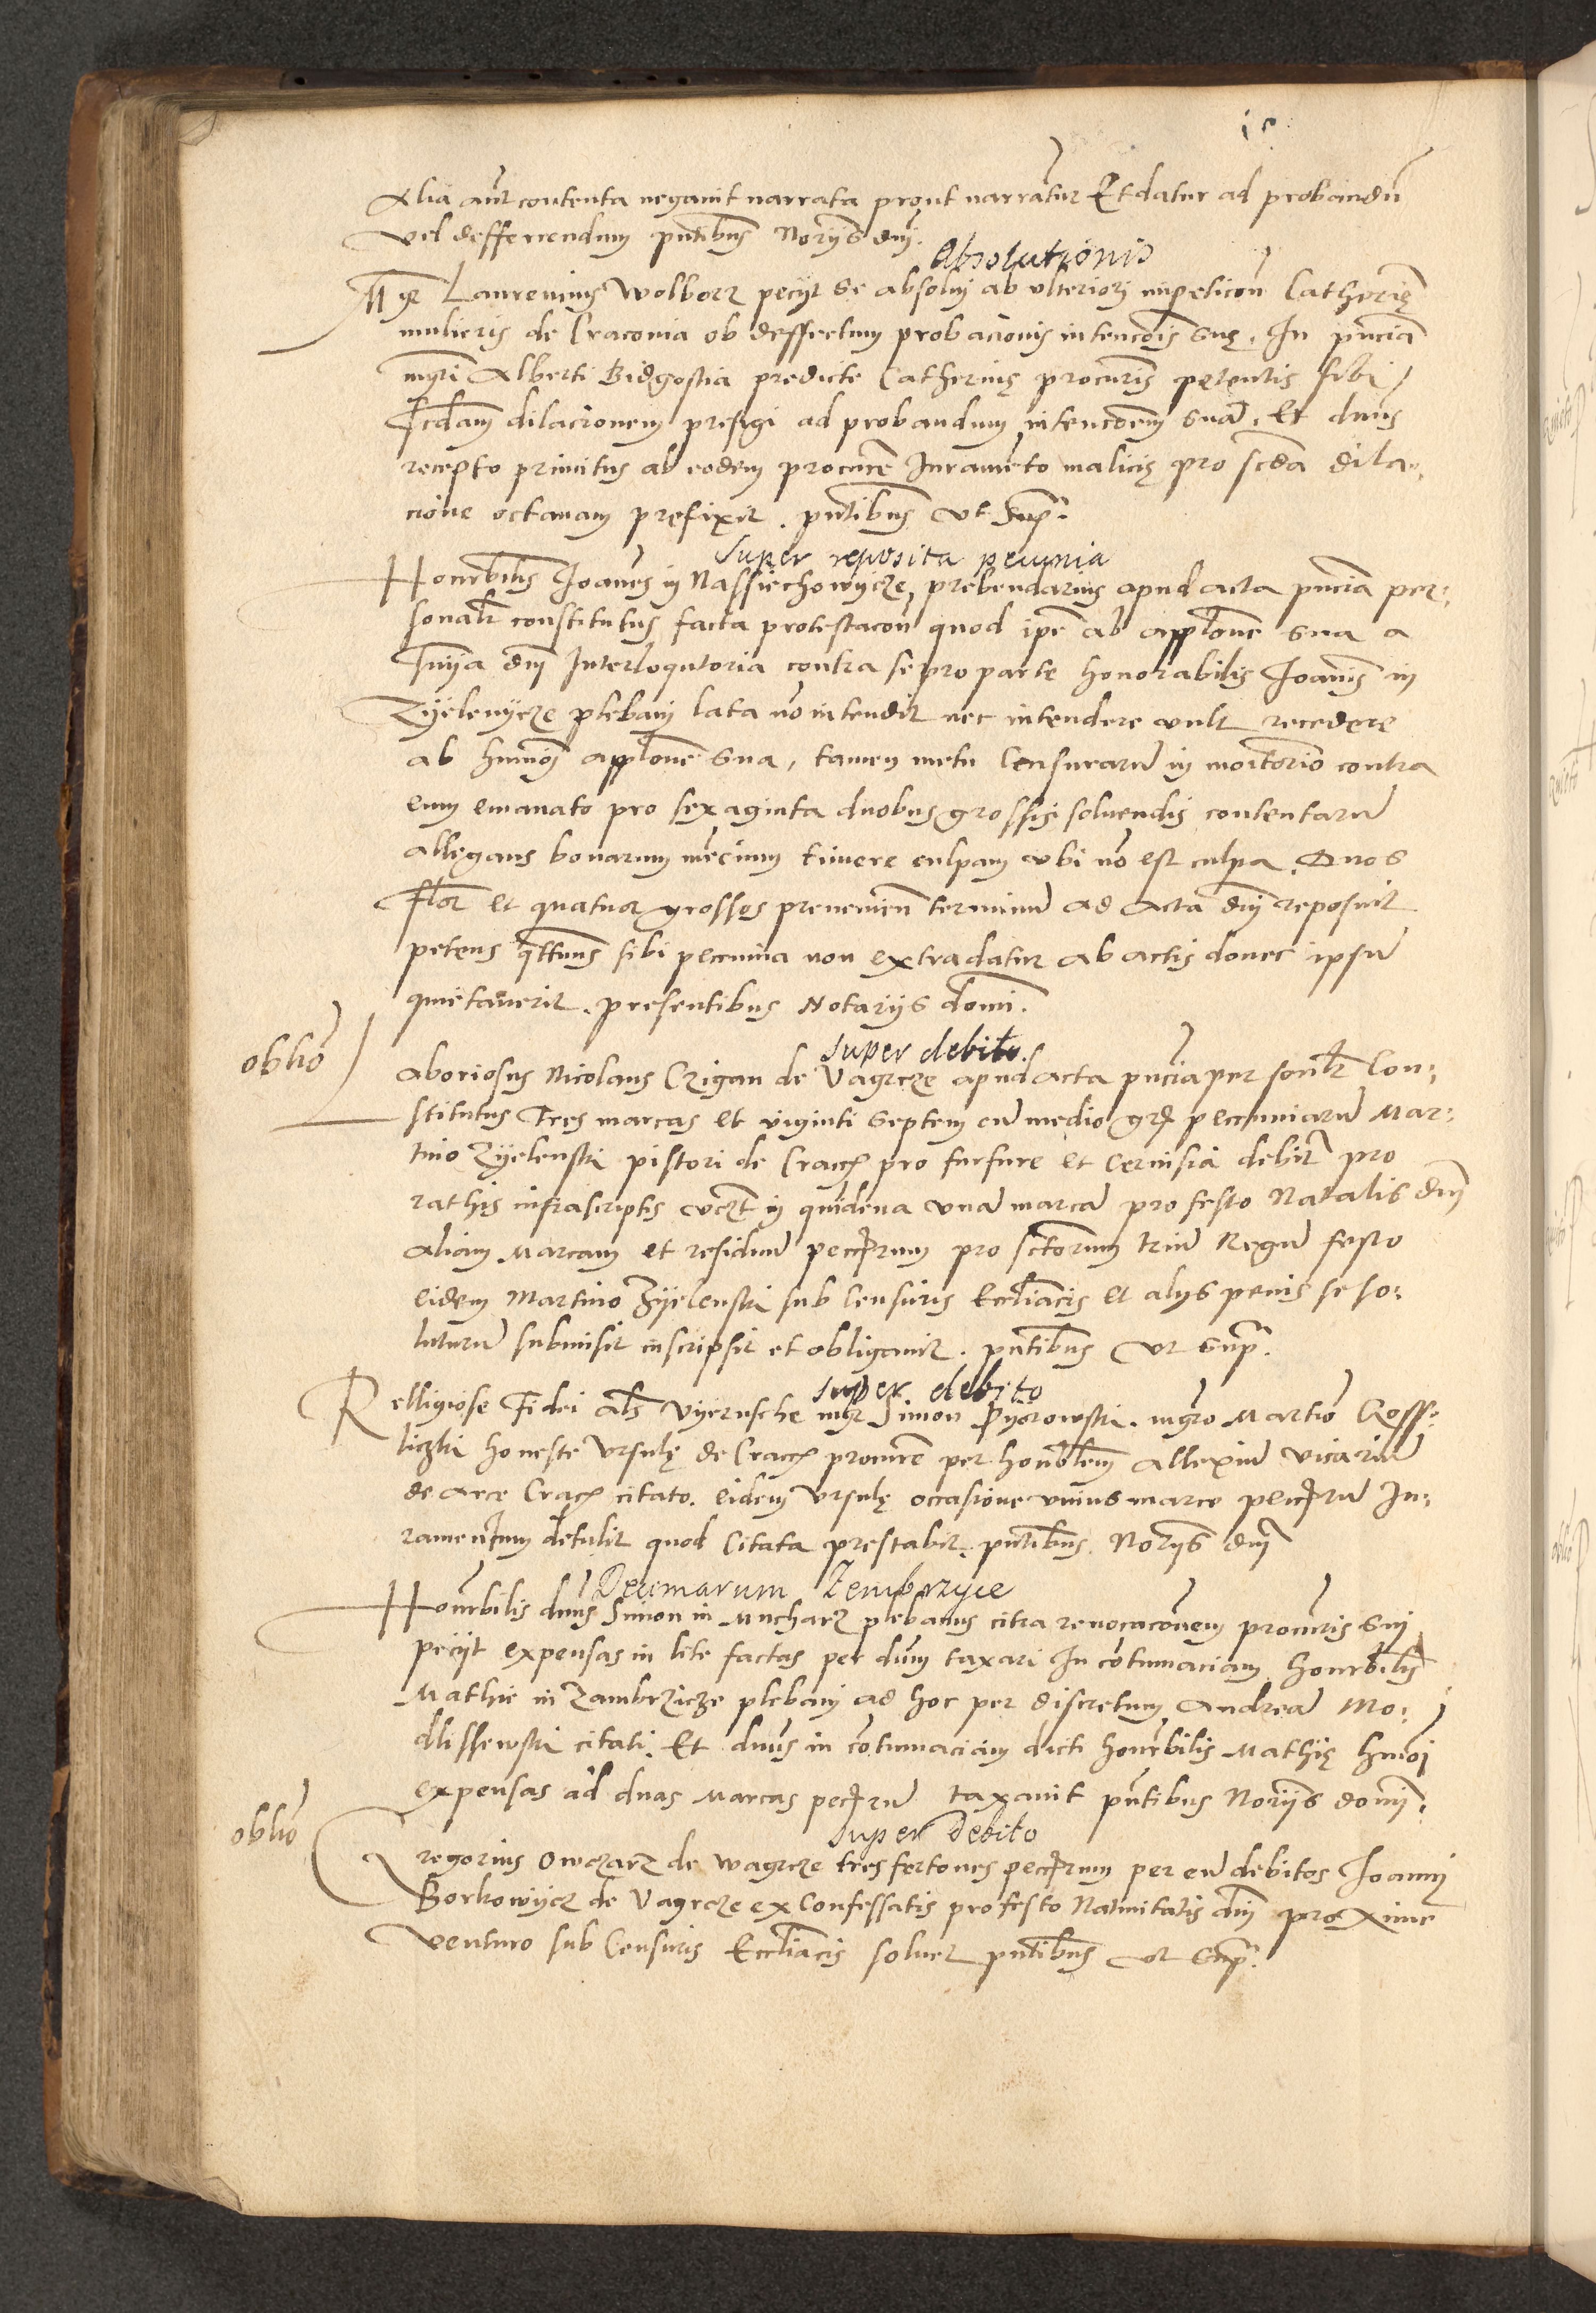 Alia aut contenta negavit narrata prout narrantur Et datur ad probandu
vel defferendum pntibus Norijs dnj.
Absolutionis
Mgr Laurencius Wolborz pecijt se absolvj ab ulteriorj impeticon Catherinę
mulieris de Cracovia ob deffectum probacionis intencois suę. In pnciã
mgri Alberti Bidgostia predicte Catherinę procuris petentis sibi
scdam dilacionem prefigi ad probandum intencoem suã. Et dnus
recepto primitus ab eodem procure Juramento malicię pro scda dila-
cione octavam prefixit. pntibus ut Supr.
Super reposita pecunia
Honrbilis Joannes in Nassiechowycze, prebendarius apud acta pncia per-
sonalr constitutus facta protestacon quod ipe ab applone sua a
snia dnj Interloqutoria contra se pro parte honorabilis Joannis in
Zyelenycze plebanj lata no intendit nec intendere vult recedere
ab humoi applone sua, tamen metu Censuraru in moitorio contra
eum emanato pro sexaginta duobus grossis solvendis contentaru
allegans bonarum mencium timere culpam ubi no est culpa. Duos
flor et quatuor grossos prevenien terminu ad Acta dnj reposuit
petens qttnus sibi peccunia non extradatur ab actis donec ipsu
quietaverit. presentibus Notarijs domi.
oblio
super debito.
Laboriosus Nicolaus Czigan de Vagrcze apud acta pncia personlr Con-
stitutus Tres marcas et viginti septem cu medio grs peccuniaru Mar-
tino Zyelenski pistori de Cracc pro furfure et Cervisia debit pro
rathis infrascriptis vczt in quidena una marca pro festo Natalis dnj
aliam Marcam et residuu peccrum pro sctorum triu Regu festo
eidem Martino Zyelenski sub Censuris Eccliacis et alijs penis se so-
luturu submisit inscripsit et obligavit. pntibus ut supr.
super debito
Relligiose Fidei als Vyernsche mgr Simon Pyorowski. mgro Martio Cross-
liczki honeste Ursulę de Cracc procure per honrblem Allexiu vicariu
de arce Cracc citato. eidem Ursulę occasione unius marce peccru Ju-
ramentum detulit quod Citata prestabit. pntibus. Norijs dnj
Decimarum Zembrzyce
Honrbilis dnus Simon in Mucharz plebanus citra revocaconem procuris suj
pecijt expensas in lite factas per dnum taxari In cotumaciam honrbilis
Mathie in Zambrzicze plebanj ad hoc per discretum Andrea Mo-
dlissewski citati. Et dnus in cotumaciam dicti honrbilis Mathię humoj
expensas ad duas Marcas peccru taxavit pntibus Norijs domj.
oblio
super Debito
Gregorius Owczarz de Wagrcze tres fertones peccrum per eu debitos Joannj
Borkowycz de Vagrcze ex Confessatis pro festo Nativitatis dnj proxime
venturo sub Censuris Eccliacis solvet pntibus ut supr.